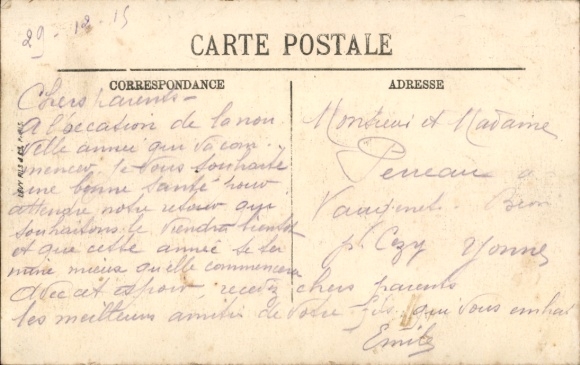 29-12-15
CARTE POSTALE
CORRESPONDANCE
Chers parents -
A l'occasion de la nou
velle année qui va com
mencer. Je vous souhaite
une bonne santé pour
attendre notre retour qui
souhaitons le viendra bientôt
et que cette année se ter
mine mieux qu'elle commencera
avec cet espoir, recevez chers parents
les meilleurs amitiés de votre fils qui vous embras
Emile
ADRESSE
Monsieur et Madame
Perreau a
Bron
pr Cezy Yonne